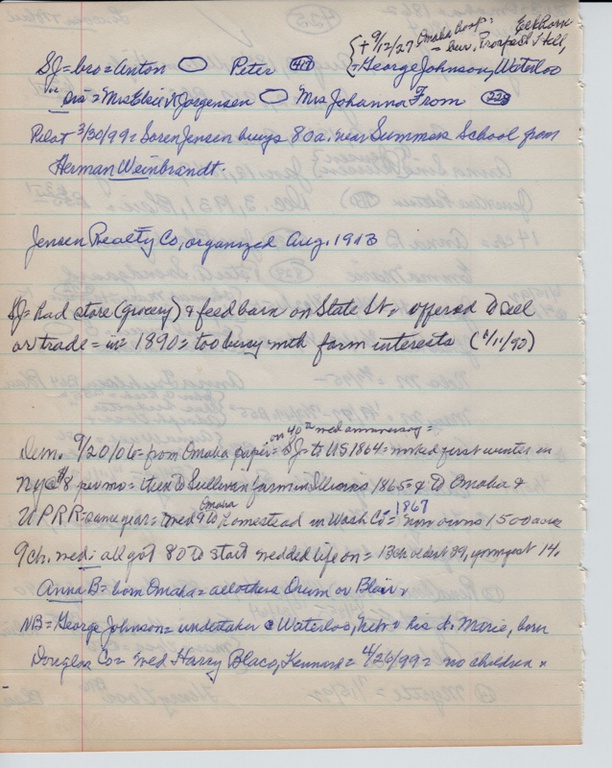 {+ 9/12/27 Omaha hosp: Elkhorn
= bur. Prospect Hill,
SJ= bro= Anton Peter 418 = George Johnson, Waterloo
" Sis= Mrs Elsie Jorgensen Mrs Johanna From 228
Pilot 3/30/99= Soren Jensen buys 80 a. near Summers School from
Herman Weinbrandt.
Jensen Realty Co, organized Aug. 1913
SJ= had store (grocery) & feed barn on State St, offered to sell
or trade = in 1890= too busy with farm interests ( /11/90)
on 40th wed anniversary=
Dem. 9/20/06= from Omaha paper= SJ= to US 1864= worked first winter in
NYC $8 per mo= then to Sullivan farm in Illinois 1865= & to Omaha &
Omaha 1867
UPRR= same year= wed & to homestead in Wash Co= now owns 1500 acres
9 ch. wed= all got 80 to start wedded life on= 13 ch oldest 39, youngest 14.
Anna B= born Omaha= all others Orum or Blair.
NB= George Johnson= undertaker @ Waterloo, Neb= his d. Marie, born
Douglas Co= wed Harry Blaco, Kennard= 4/26/99= no children.